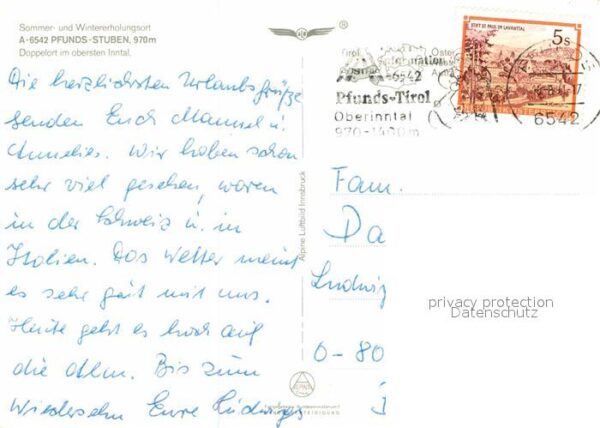 Sommer- und Wintererholungsort
A-6542 PFUNDS-STUBEN, 970 m
Doppelort im obersten Inntal.
Die herzlichsten Urlaubsgrüße
senden Euch Manuel u.
Annelies. Wir haben schon
sehr viel gesehen, waren
in der Schweiz u. in
Italien. Das Wetter meint
es sehr gut mit uns.
Heute geht es hoch auf
die Alm. Bis zum
Wiedersehn Eure Ludwigs
Alpine Luftbild Innsbruck
®
Tirol
Information
A-6542
Pfunds-Tirol
Oberinntal
970-1400m
STIFT ST. PAUL IM LAVANTTAL
5s
6542
Fam.
Da
Ludwig
O-80
privacy protection
Datenschutz